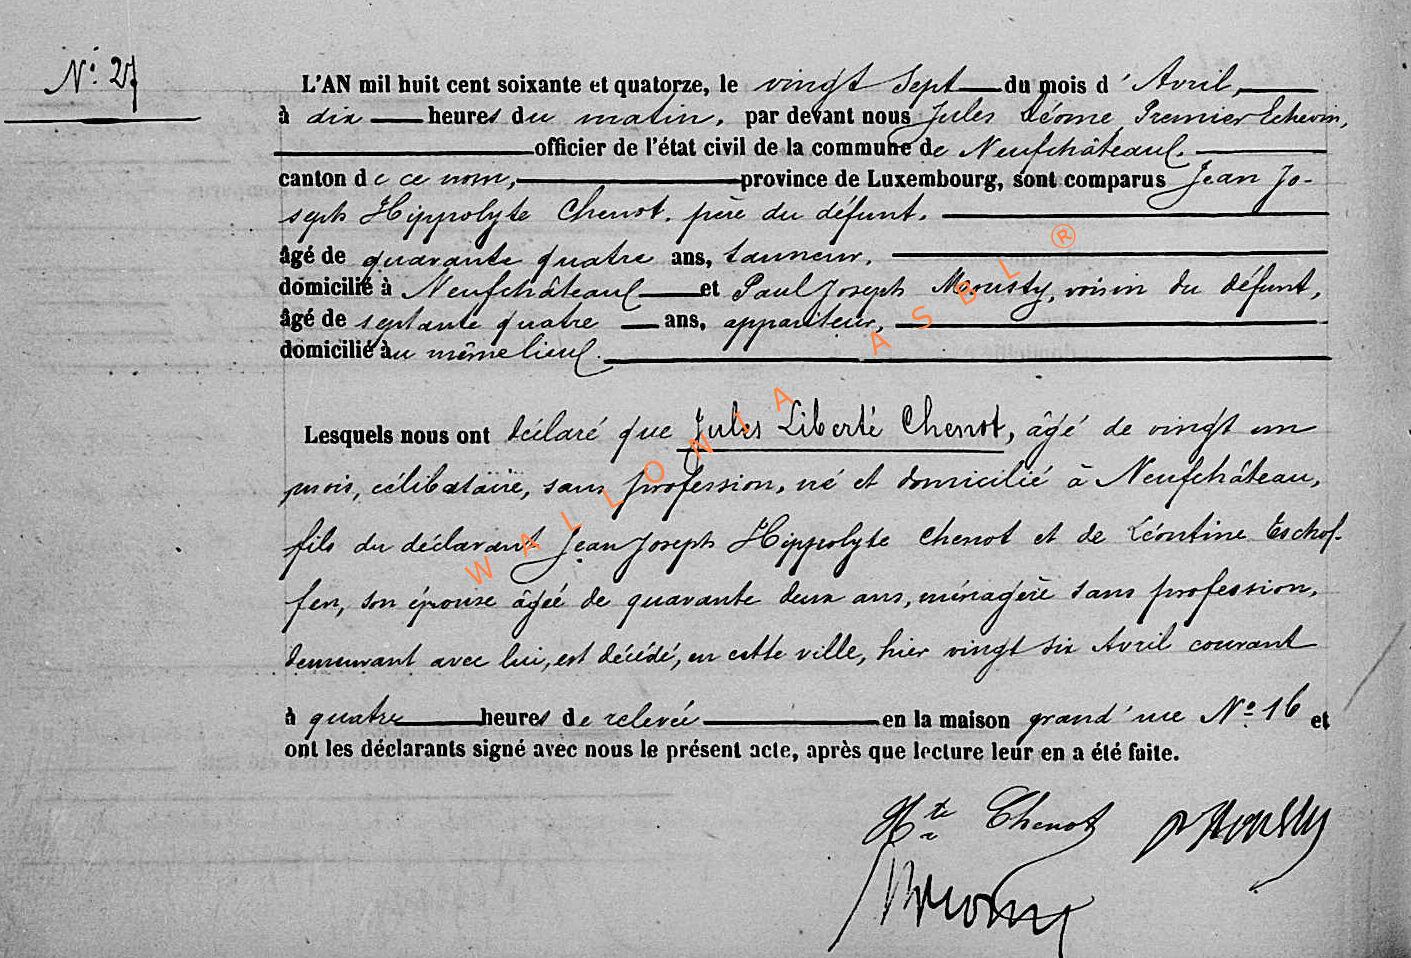 N° 27
L'AN mil huit cent soixante et quatorze, le vingt sept du mois d'Avril,
à dix heures du matin, par devant nous Jules Léome Premier Echevin,
officier de l'état civil de la commune de Neufchâteau.
canton de ce nom, province de Luxembourg, sont comparus Jean Jo-
seph Hippolyte Chenot, père du défunt,
âgé de quarante quatre ans, tanneur,
domicilié à Neufchâteau et Paul Joseph Mousty, voisin du défunt,
âgé de septante quatre ans, appariteur,
domicilié au même lieu.
Lesquels nous ont déclaré que Jules Liberté Chenot, âgé de vingt un
mois, célibataire, sans profession, né et domicilié à Neufchâteau,
fils du déclarant Jean Joseph Hippolyte Chenot et de Léontine Eschof-
fen, son épouse âgée de quarante deux ans, ménagère sans profession,
demeurant avec lui, est décédé, en cette ville, hier vingt six Avril courant
à quatre heures de relevée en la maison grand'rue N° 16 et
ont les déclarants signé avec nous le présent acte, après que lecture leur en a été faite.
Hte Chenot P Mousty
WALLONIA ASBL ®